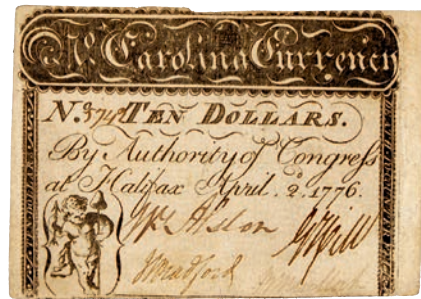 No. Carolina Currency
No. TEN DOLLARS.
By Authority of Congress
at Halifax April. 2. 1776.
Wm Alston GHill
JBradford